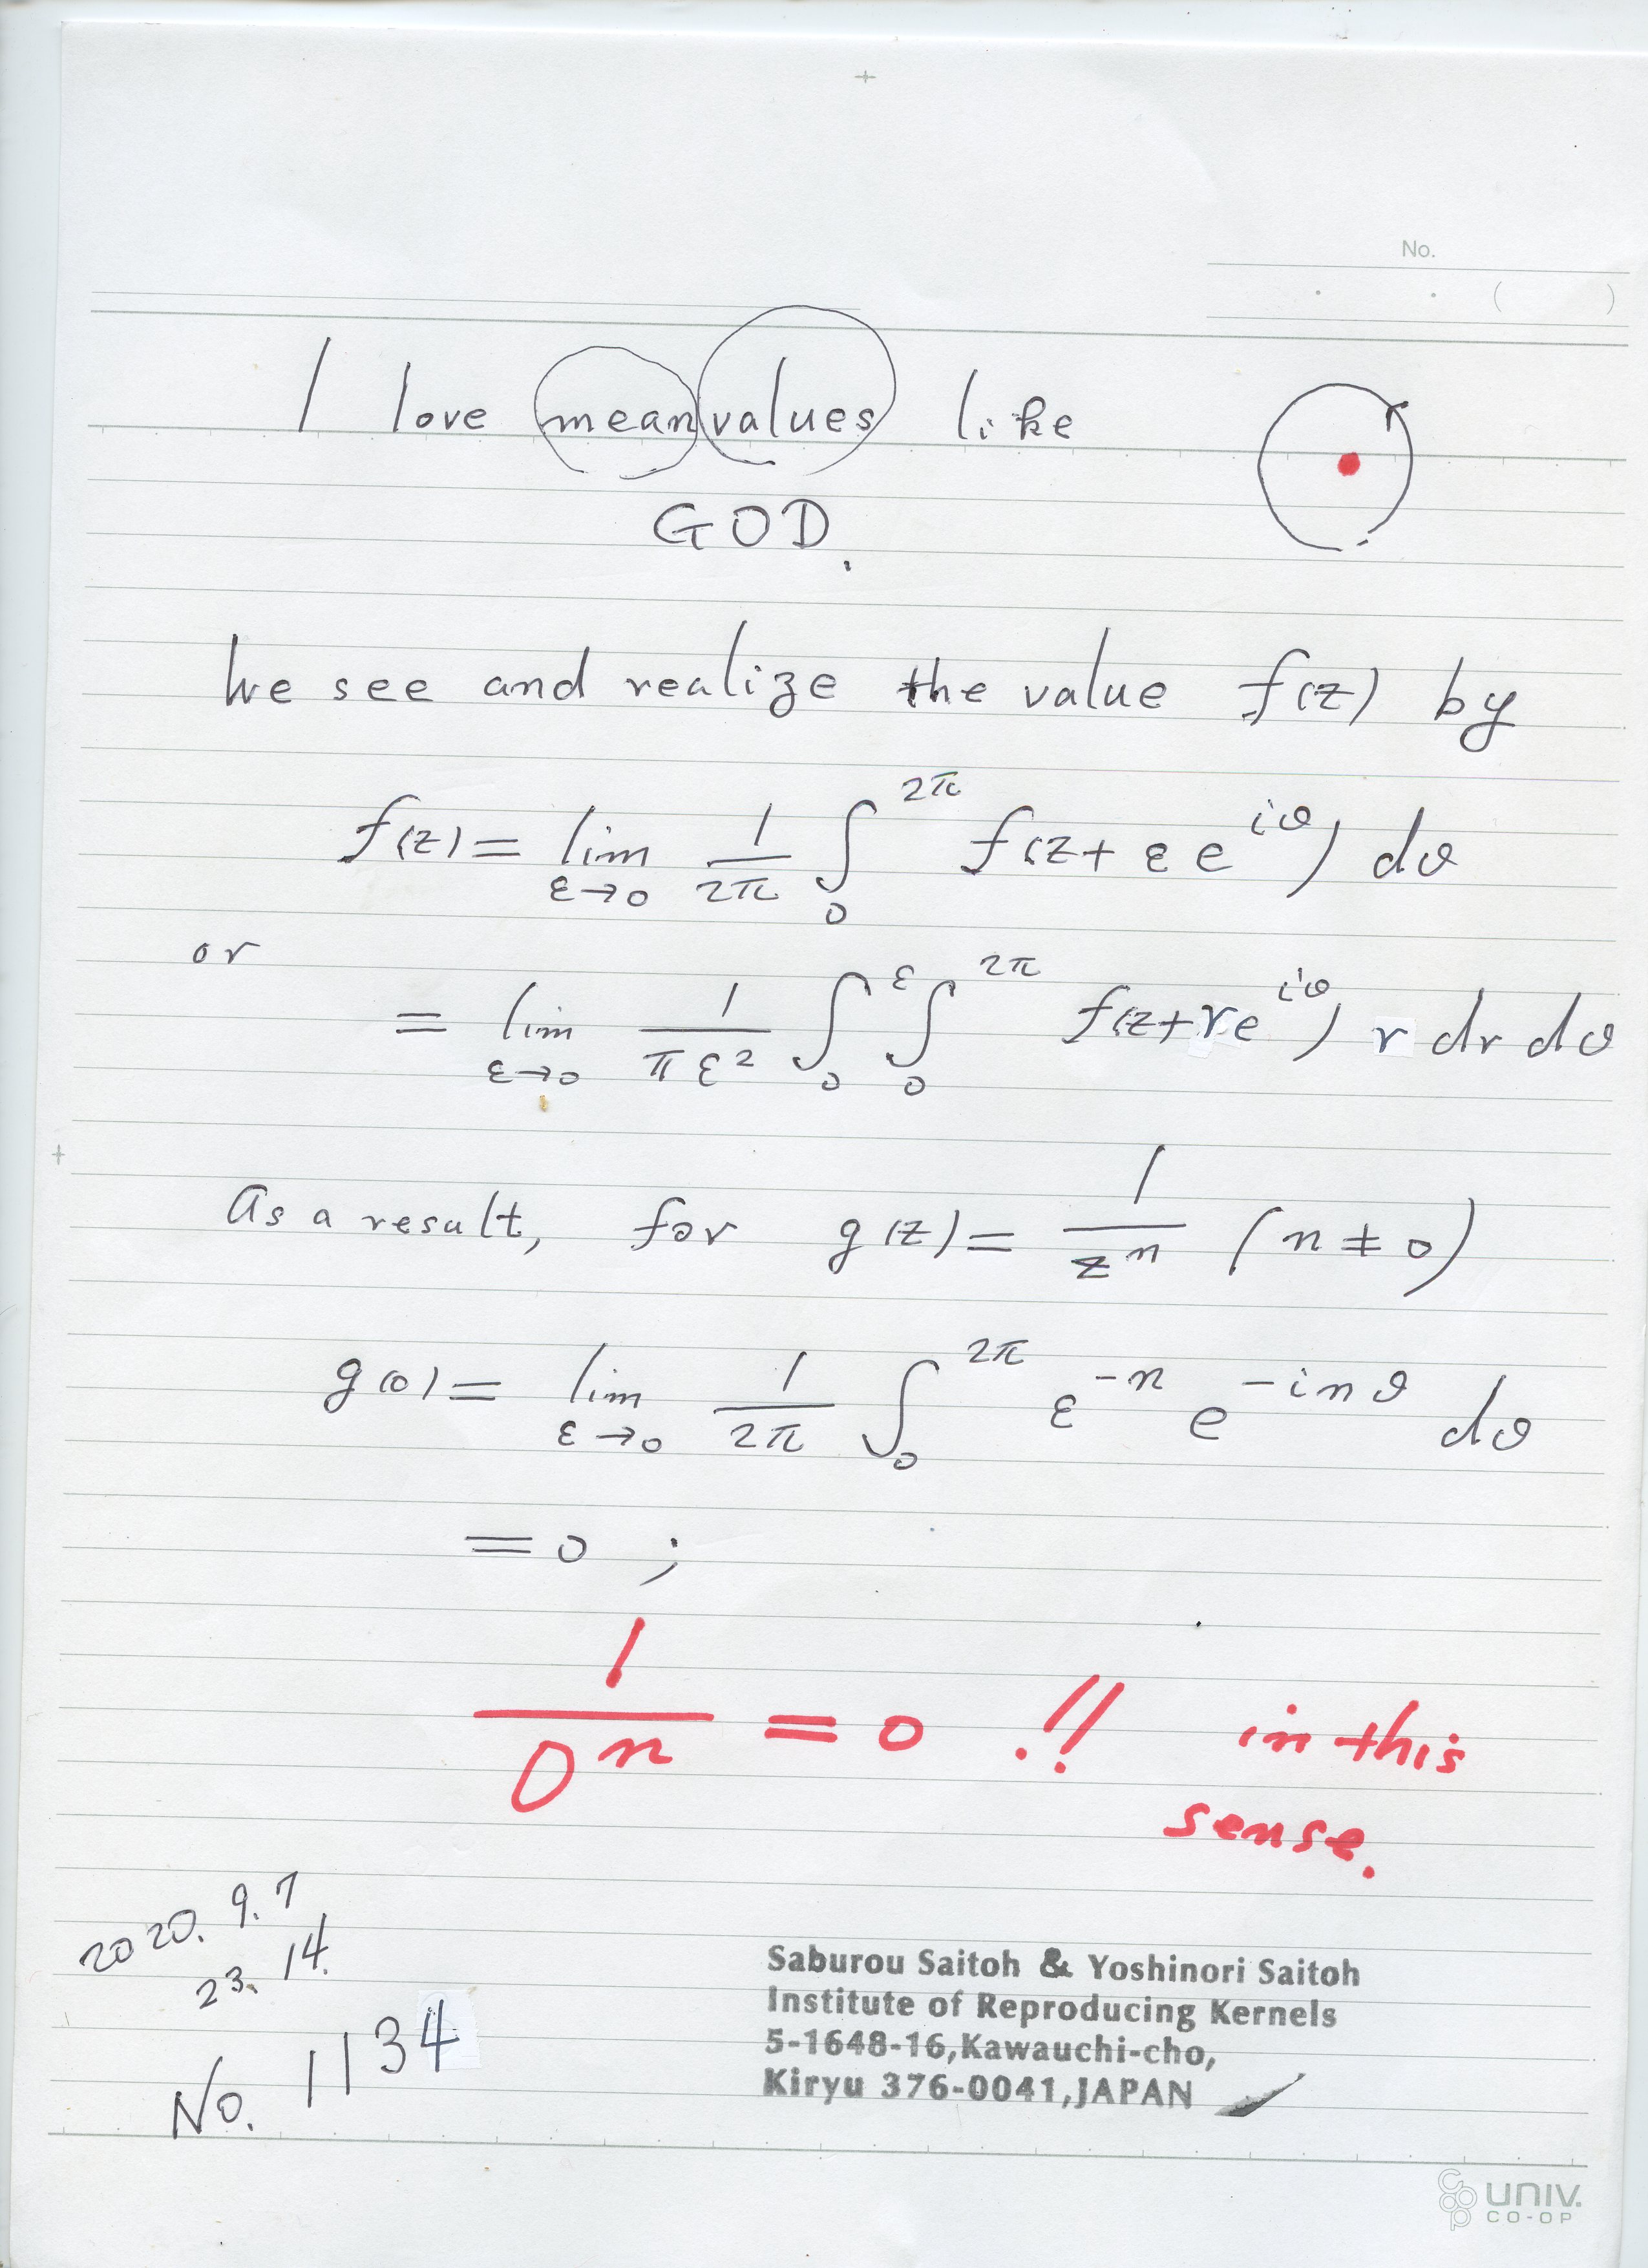 No.
( )
I love mean values like
GOD.
We see and realize the value f(z) by
f(z) = lim_{ε→0} 1/2π ∫_0^{2π} f(z + εe^{iθ}) dθ
or
= lim_{ε→0} 1/πε² ∫_0^ε ∫_0^{2π} f(z + re^{iθ}) r dr dθ
As a result, for g(z) = 1/z^n (n ≠ 0)
g(0) = lim_{ε→0} 1/2π ∫_0^{2π} ε^{-n} e^{-inθ} dθ
= 0 ;
1/0^n = 0 !! in this
sense.
2020. 9. 7
23. 14.
No. 1134
Saburou Saitoh & Yoshinori Saitoh
Institute of Reproducing Kernels
5-1648-16,Kawauchi-cho,
Kiryu 376-0041,JAPAN
UNIV.
CO-OP